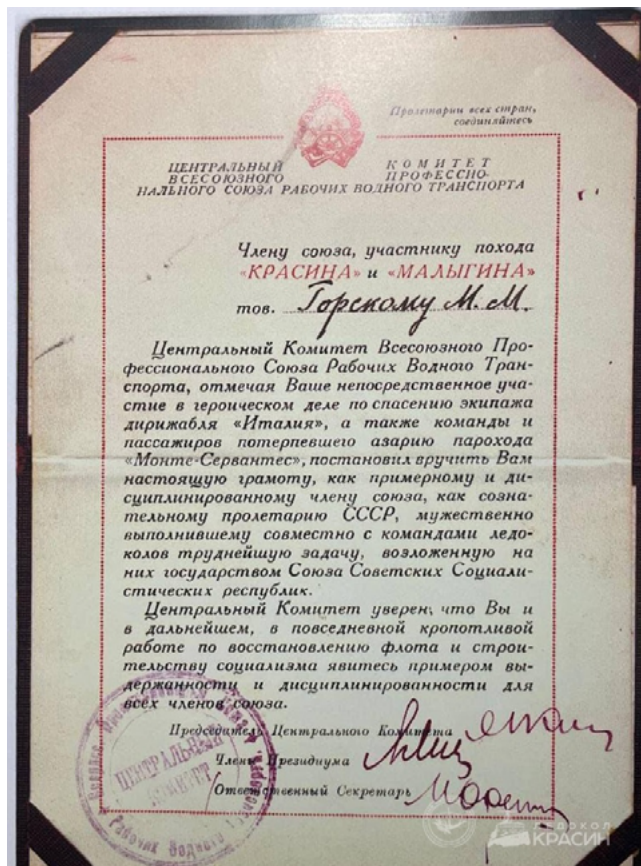 Пролетарии всех стран,
соединяйтесь
ЦЕНТРАЛЬНЫЙ КОМИТЕТ
ВСЕСОЮЗНОГО ПРОФЕССИО-
НАЛЬНОГО СОЮЗА РАБОЧИХ ВОДНОГО ТРАНСПОРТА
Члену союза, участнику похода
«КРАСИНА» и «МАЛЫГИНА»
тов. Горскому М. М.
Центральный Комитет Всесоюзного Про-
фессионального Союза Рабочих Водного Тран-
спорта, отмечая Ваше непосредственное уча-
стие в героическом деле по спасению экипажа
дирижабля «Италия», а также команды и
пассажиров потерпевшего азарию парохода
«Монте-Сервантес», постановил вручить Вам
настоящую грамоту, как примерному и ди-
сциплинированному члену союза, как созна-
тельному пролетарию СССР, мужественно
выполнившему совместно с командами ледо-
колов труднейшую задачу, возложенную на
них государством Союза Советских Социали-
стических республик.
Центральный Комитет уверен, что Вы и
в дальнейшем, в повседневной кропотливой
работе по восстановлению флота и строи-
тельству социализма явитесь примером вы-
держанности и дисциплинированности для
всех членов союза.
Председатель Центрального Комитета
Члены Президиума
Ответственный Секретарь
ЦЕНТРАЛЬНЫЙ
КОМИТЕТ
Рабочих Водного
ЛЕДОКОЛ
КРАСИН